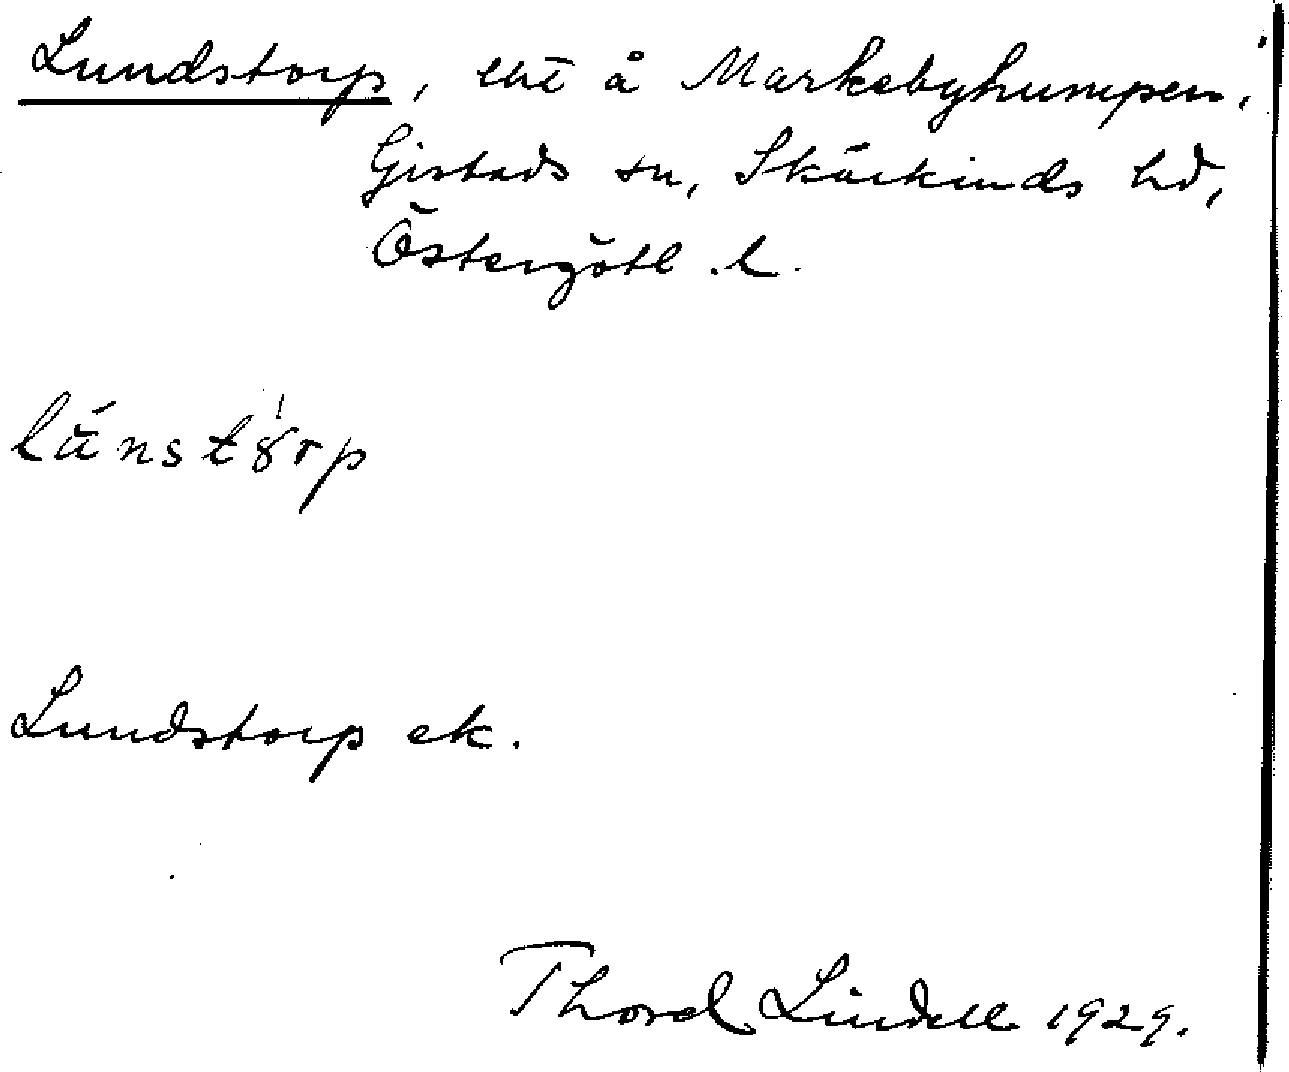 Lundstorp, lht å Markebyhumpen,
Gistads sn, Skärkinds hd,
Östergötl. l.
lúnstȣ̀rp
Lundstorp ek.
Thord Lindell 1929.